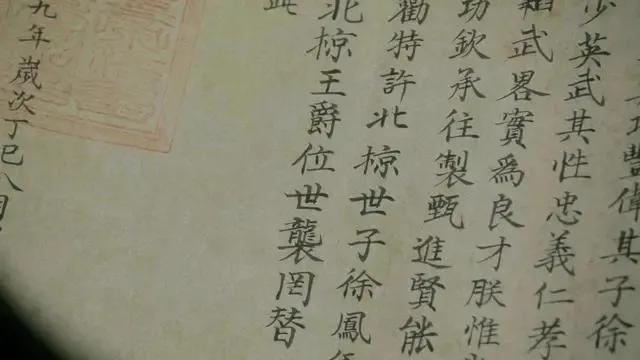 功豐偉其子徐
少英武其性忠義仁孝
武畧實爲良才朕惟
功欽承往製甄進賢能
勸特許北椋世子徐鳳
北椋王爵位世襲罔替
此
九年歲次丁巳八月